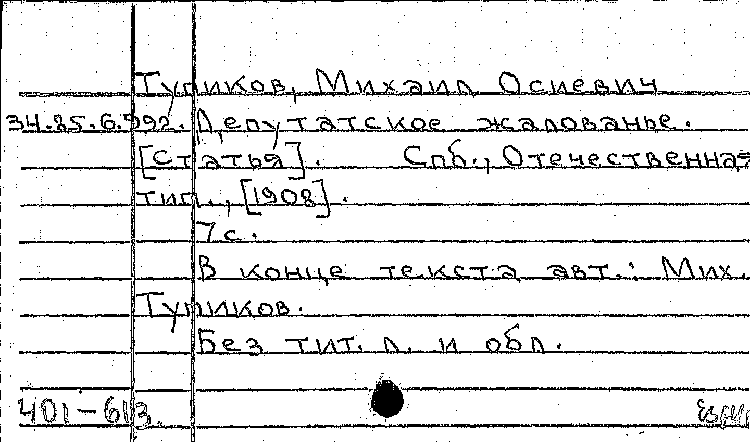 Тупиков, Михаил Осиевич
34.85.6.592. Депутатское жалованье.
[Статья]. Спб., Отечественная
тип., [1908].
7 с.
В конце текста авт.: Мих.
Тупиков.
Без тит. л. и обл.
401-613.